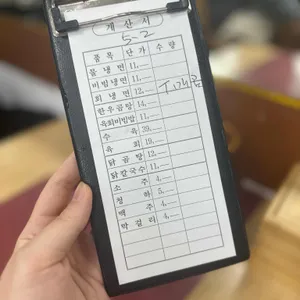 계 산 서
5-2
품 목 단 가 수 량
물 냉 면 11,
비빔냉면 11,
회 냉 면 12,
한우곰탕 14,
육회비빔밥 11,
수 육 39,
육 회 19,
닭 곰 탕 12,
닭칼국수 11,
소 주 4,
청 하 5,
맥 주 4,
막 걸 리 4,